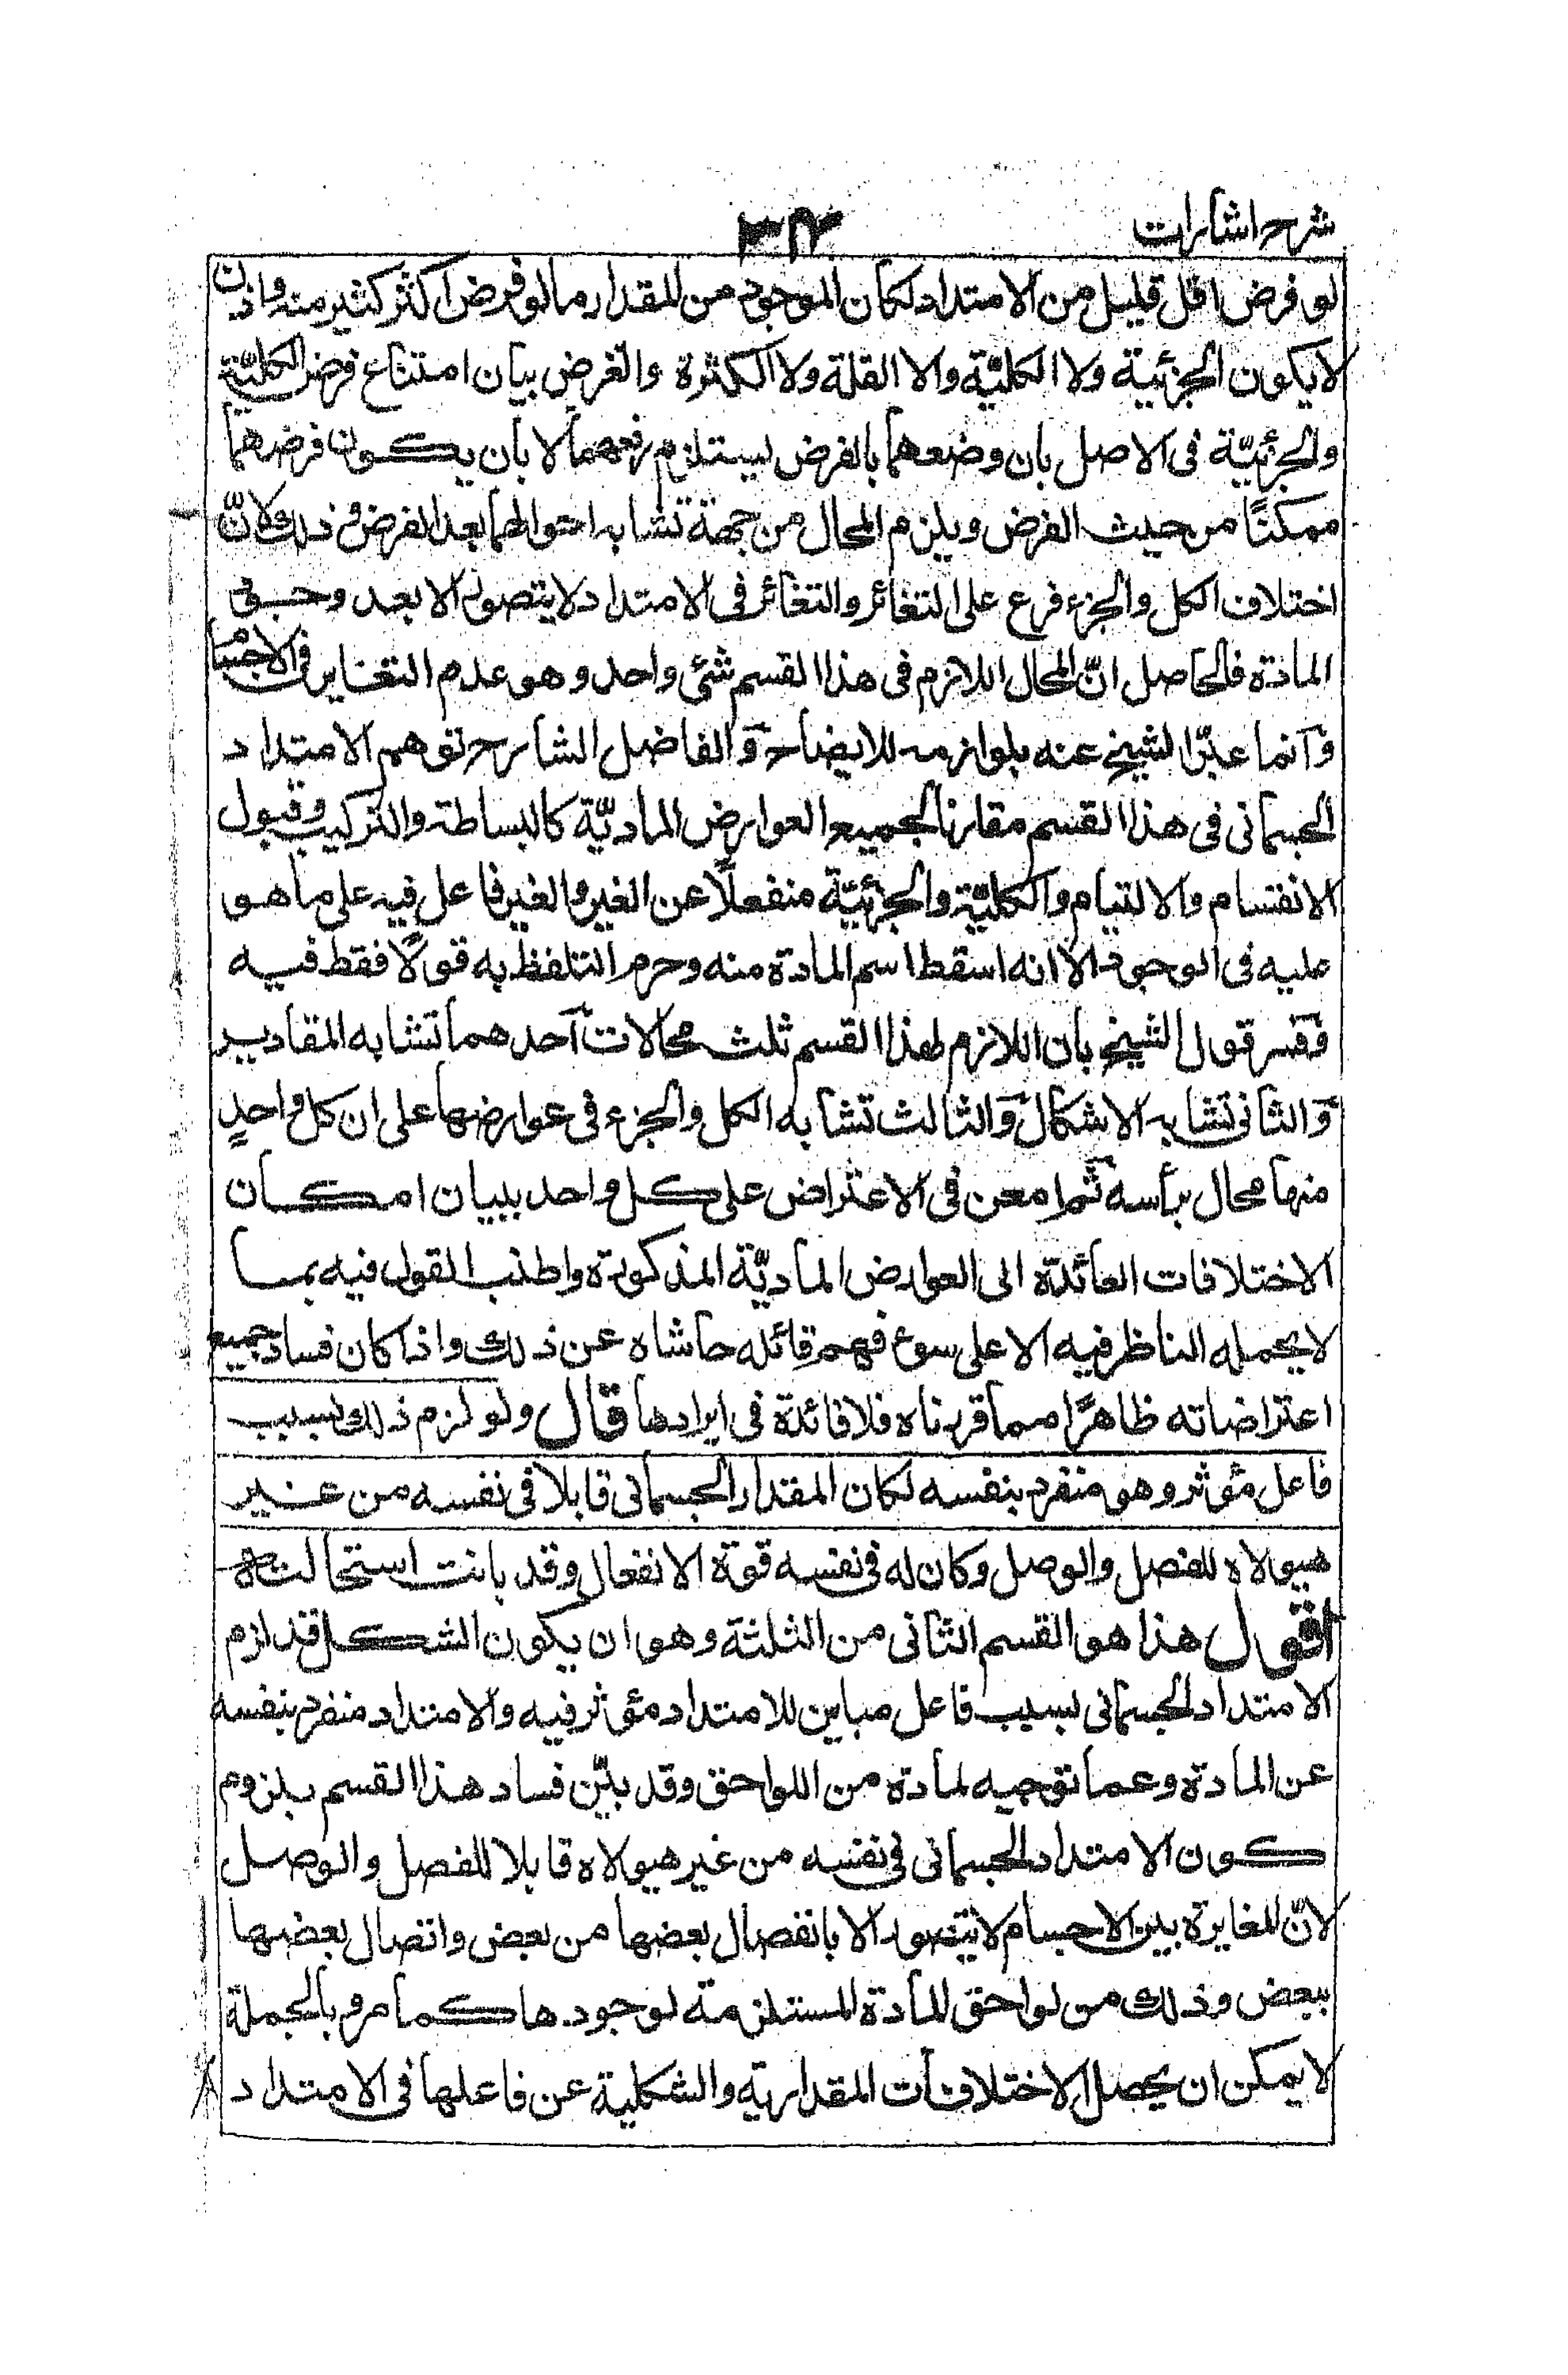 شرح اشارات
٣٢
لو فرض اقل قليل من الامتداد لكان الموجود من المقدار ما لو فرض اكثر كثير منه واذن
لا يكون الجزئية ولا الكلية والا القلة ولا الكثرة والغرض بيان امتناع فرض الكليّة
والجزئيّة فى الاصل بان وضعهما بالفرض يستلزم رفعهما لا بان يكون فرضهما
ممكنًا من حيث الفرض ويلزم المحال من جهة تشابه احوالهما بعد الفرض و ذلك لانّ
اختلاف الكل والجزء فرع على التغائر والتغائر فى الامتداد لا يتصور الا بعد وجود
المادة فالحاصل انّ المحال اللازم فى هذا القسم شئ واحد وهو عدم التغاير فى الاجسام
وانما عبّر الشيخ عنه بلوازمه للايضاح والفاضل الشارح توهم الامتداد
الجسمانى فى هذا القسم مقارنا لجميع العوارض الماديّة كالبساطة والتركيب وقبول
الانقسام والالتيام والكليّة والجزئيّة منفعلًا عن الغير والغير فاعل فيه على ما هو
عليه فى الوجود الا انه اسقط اسم المادة منه وحرم التلفظ به قولًا فقط فيه
ففسر قول الشيخ بان اللازم لهذا القسم ثلث محالات احدهما تشابه المقادير
والثانى تشابه الاشكال والثالث تشابه الكل والجزء فى عوارضها على ان كل واحدٍ
منها محال برأسه ثم امعن فى الاعتراض على كل واحد ببيان امكان
الاختلافات العائدة الى العوارض الماديّة المذكورة واطنب القول فيه بما
لا يحمله الناظر فيه الا على سوء فهم قائله حاشاه عن ذلك واذا كان فساد جميع
اعتراضاته ظاهرًا مما قررناه فلا فائدة فى ايرادها قال ولو لزم ذلك بسبب
فاعل مؤثر وهو منفرد بنفسه لكان المقدار الجسمانى قابلا فى نفسه من غير
هيولاه للفصل والوصل وكان له فى نفسه قوة الانفعال وقد بانت استحالته
اقول هذا هو القسم الثانى من الثلثة وهو ان يكون الشكل قد لزم
الامتداد الجسمانى بسبب فاعل مباين للامتداد مؤثر فيه والامتداد منفرد بنفسه
عن المادة وعما توجبه لمادة من اللواحق وقد بيّن فساد هذا القسم بلزوم
كون الامتداد الجسمانى فى نفسه من غير هيولاه قابلا للفصل والوصل
لانّ المغايرة بين الاجسام لا يتصور الا بانفصال بعضها من بعض واتصال بعضها
ببعض وذلك من لواحق المادة المستلزمة لوجودها كما مر وبالجملة
لا يمكن ان يحصل الاختلافات المقدارية والشكلية عن فاعلها فى الامتداد